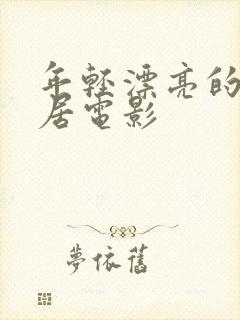 年輕漂亮的
居電影
夢依舊